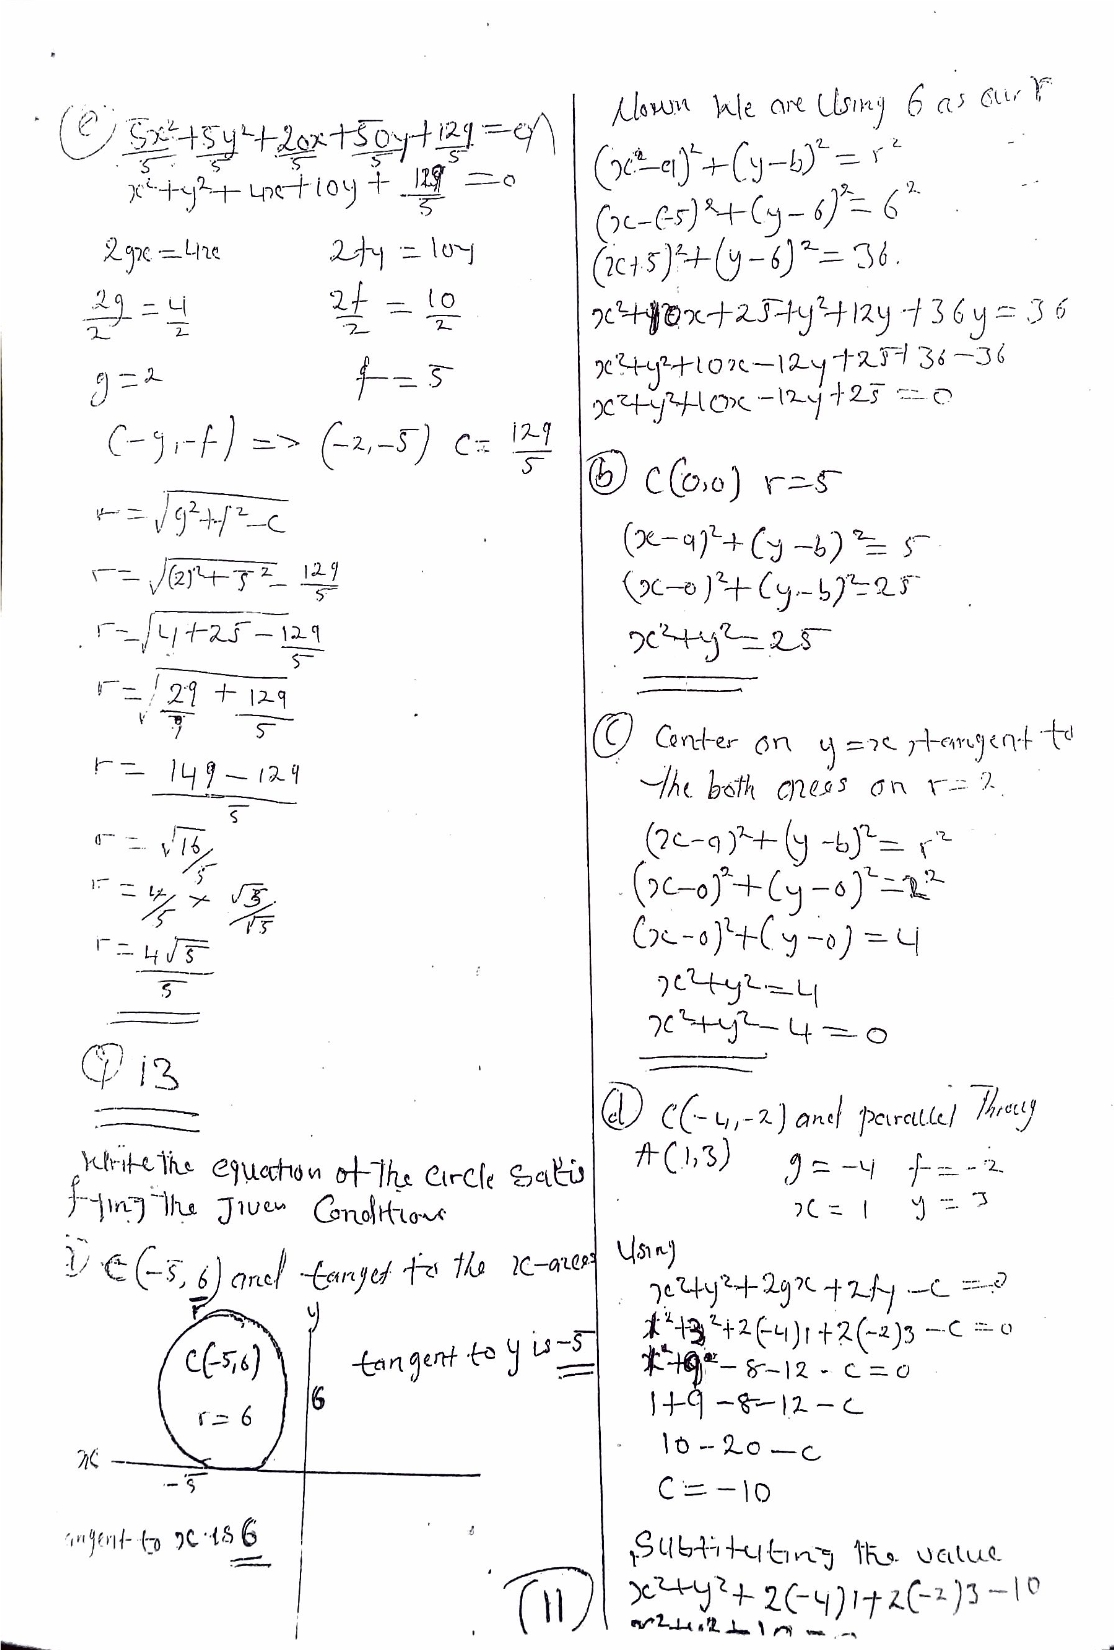 (e) 5x²/5 + 5y²/5 + 20x/5 + 50y/5 + 129/5 = 0
x² + y² + 4x + 10y + 129/5 = 0
2gx = 4x    2fy = 10y
2g/2 = 4/2    2f/2 = 10/2
g = 2    f = 5
(-g, -f) => (-2, -5) c = 129/5
r = √(g² + f² - c)
r = √((2)² + 5² - 129/5)
r = √(4 + 25 - 129/5)
r = √(29 + 129/5)
r = 149 - 129/5
r = √16/5
r = 4/5 × √5/√5
r = 4√5/5
Q 13
Write the equation of the circle Satis
fying the Given Conditions
i) C(-5, 6) and tanget to the x-axes
r
y
C(-5,6)
r = 6
6
tangent to y is -5
x
-5
tangent to x is 6
Nown We are Using 6 as our r
(x² - a)² + (y - b)² = r²
(x - (-5)² + (y - 6)² = 6²
(x + 5)² + (y - 6)² = 36.
x² + 10x + 25 + y² + 12y + 36y = 36
x² + y² + 10x - 12y + 25 + 36 - 36
x² + y² + 10x - 12y + 25 = 0
(b) C(0,0) r = 5
(x - a)² + (y - b)² = 5
(x - 0)² + (y - b)² = 25
x² + y² = 25
(c) Center on y = x, tangent to
the both axes on r = 2.
(x - a)² + (y - b)² = r²
(x - 0)² + (y - 0)² = 2²
(x - 0)² + (y - 0) = 4
x² + y² = 4
x² + y² - 4 = 0
(d) C(-4, -2) and parallel Throug
A(1,3)    g = -4    f = -2
x = 1    y = 3
Using
x² + y² + 2gx + 2fy - c = 0
1² + 3² + 2(-4)1 + 2(-2)3 - c = 0
1² + 9 - 8 - 12 - c = 0
1 + 9 - 8 - 12 - c
10 - 20 - c
C = -10
Subtituting the value
x² + y² + 2(-4)1 + 2(-2)3 - 10
(11)